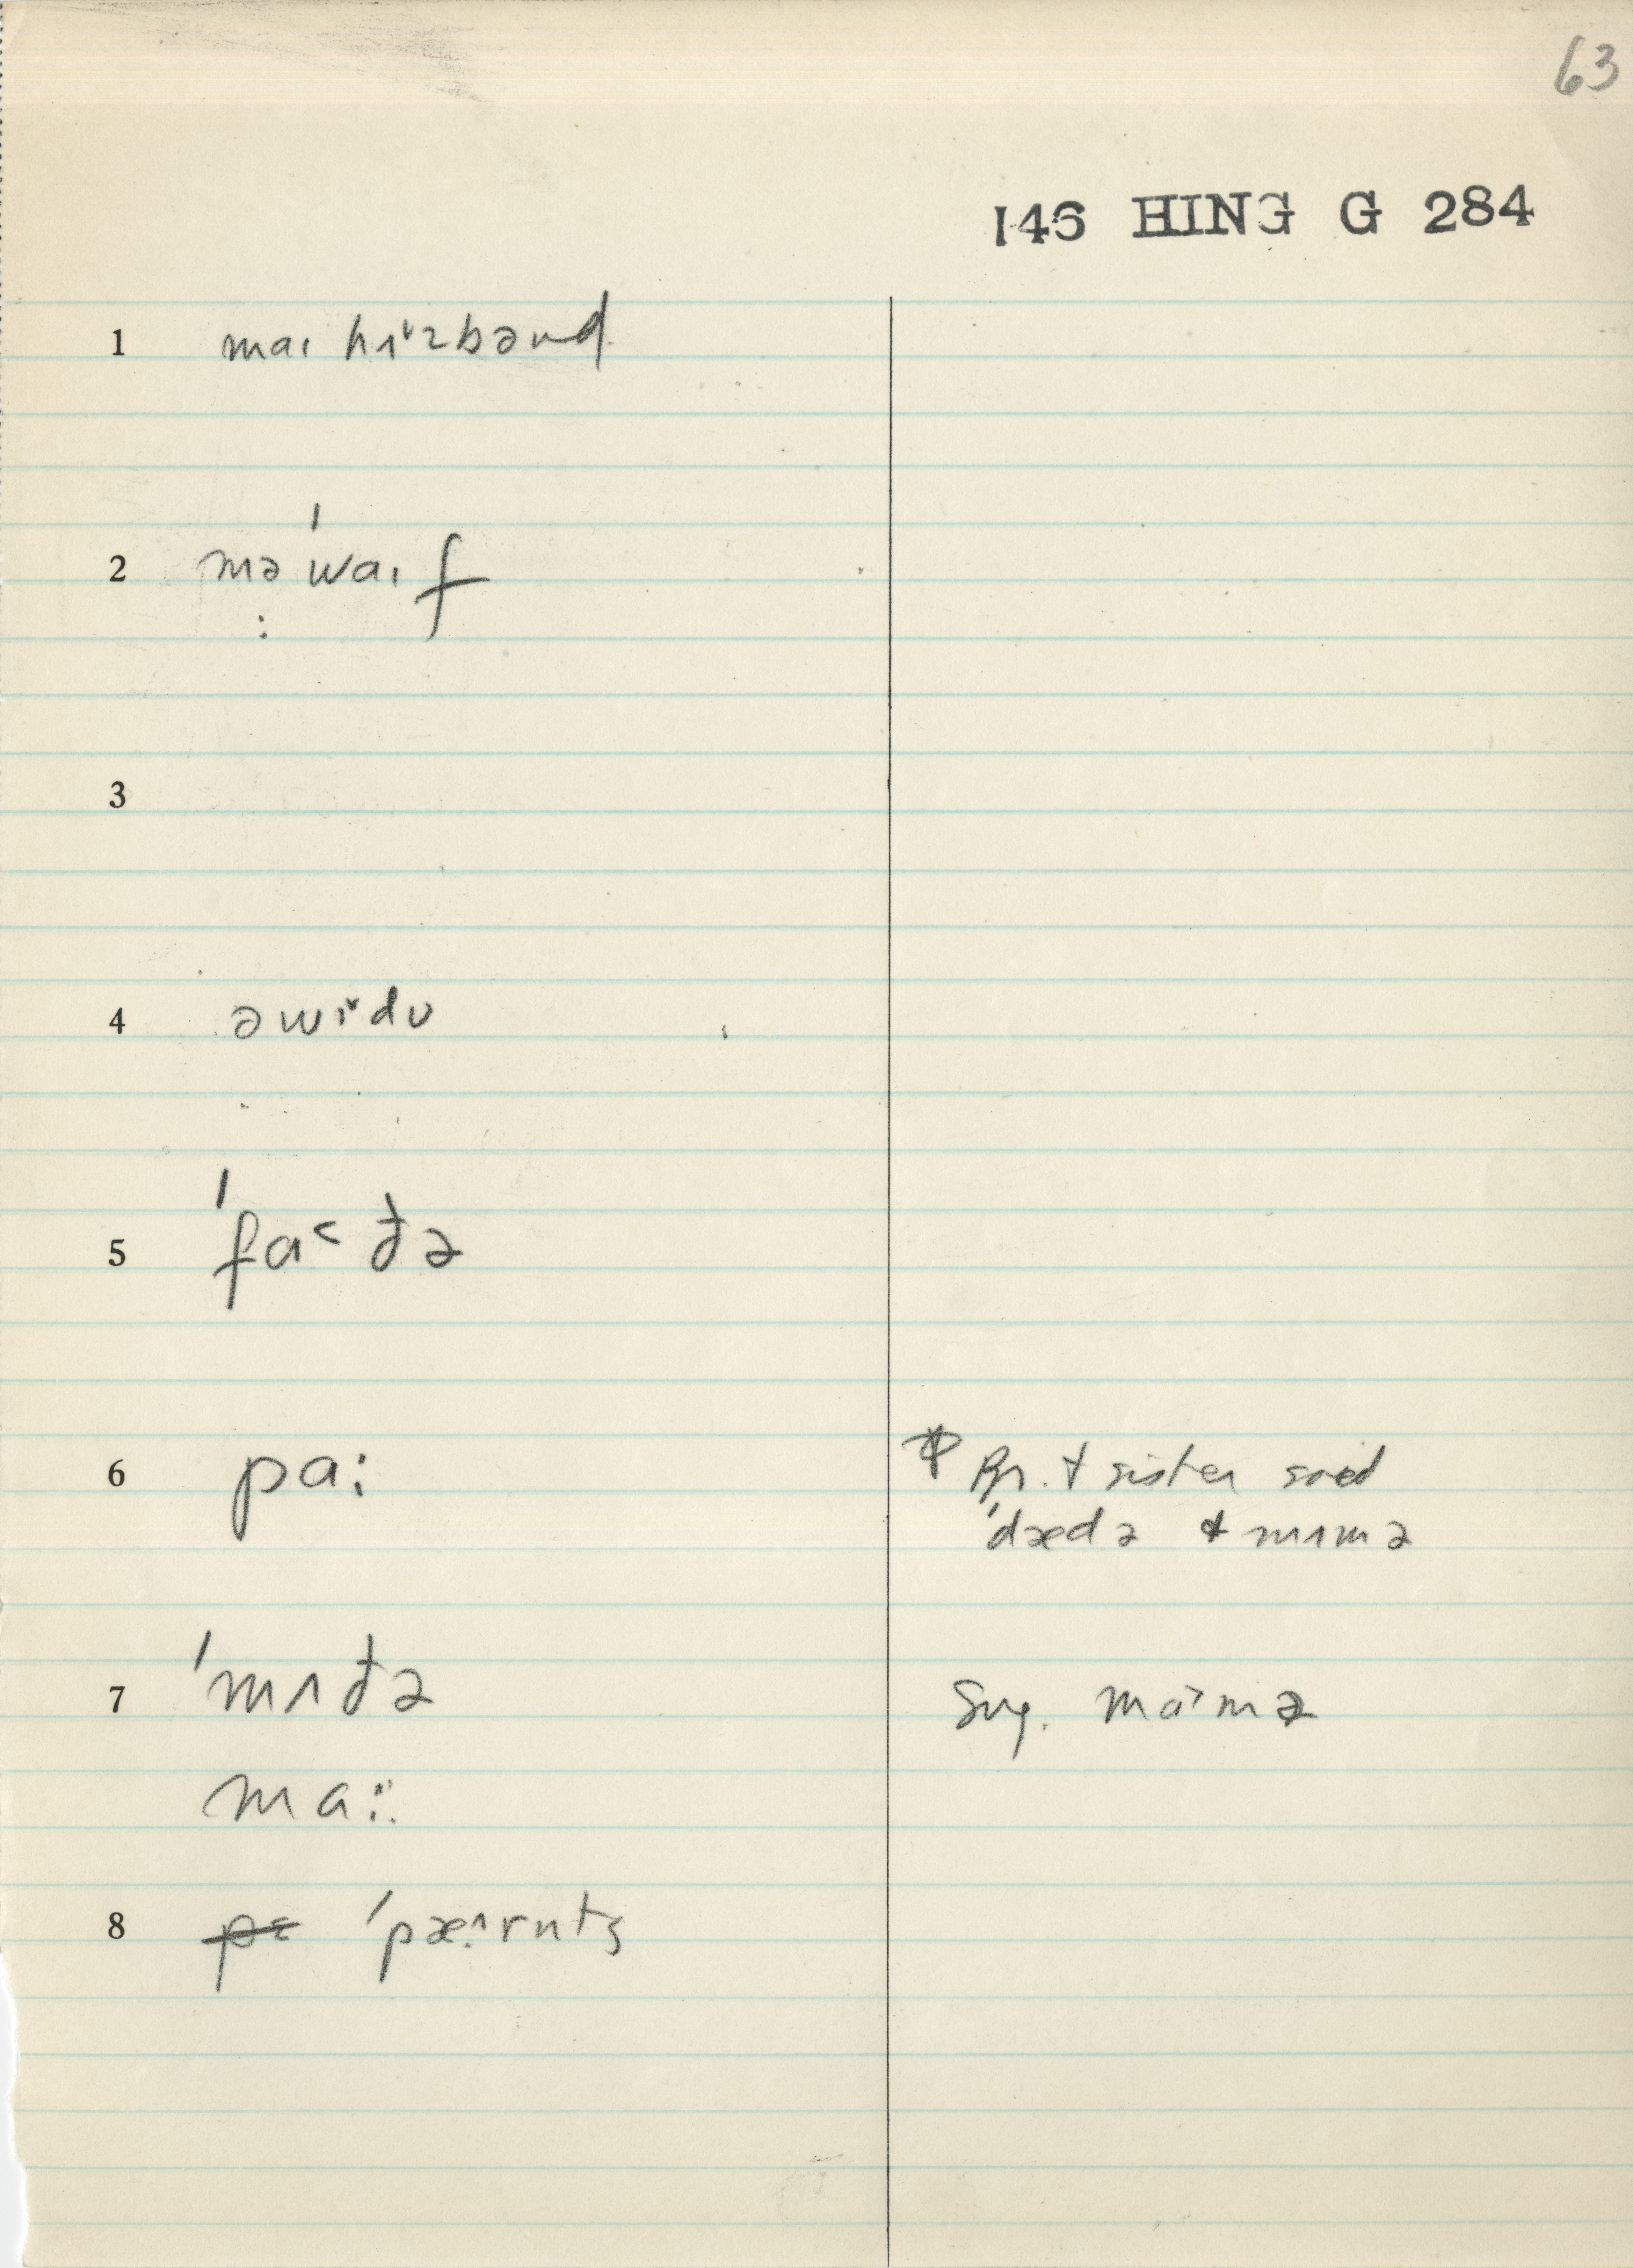 63
146 HING G 284
1 maɪ hʌˇzbənd
2 mə ˈwaɪf
3
4 əwɪˇdʊ
5 ˈfa˂ðə
6 pa: Pr. & sister said
ˈdædə & mʌmə
7 ˈmʌðə Sug. ma˃mə
ma:
8 ˈpæ^rnts